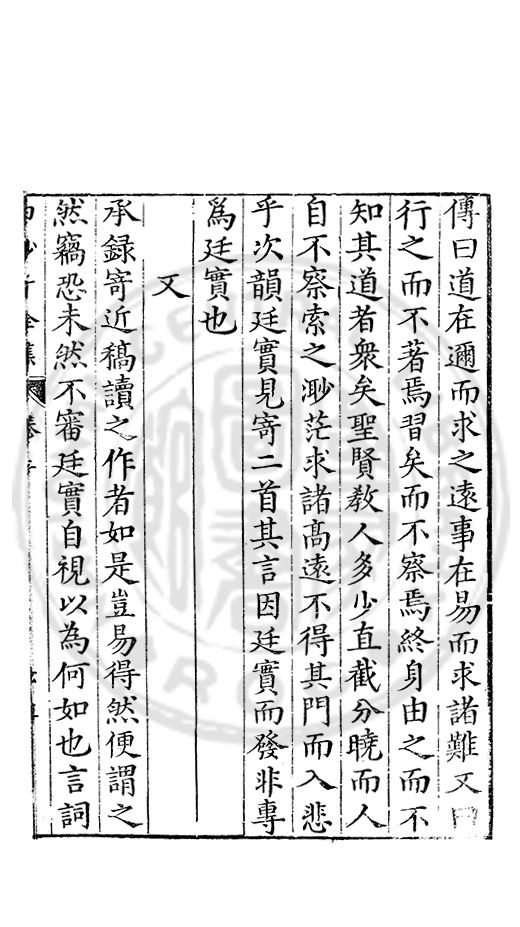 傳曰道在邇而求之遠事在易而求諸難又曰
行之而不著焉習矣而不察焉終身由之而不
知其道者衆矣聖賢教人多少直截分曉而人
自不察索之渺茫求諸高遠不得其門而入悲
乎次韻廷實見寄二首其言因廷實而發非專
爲廷實也
又
承録寄近稿讀之作者如是豈易得然便謂之
然竊恐未然不審廷實自視以為何如也言詞